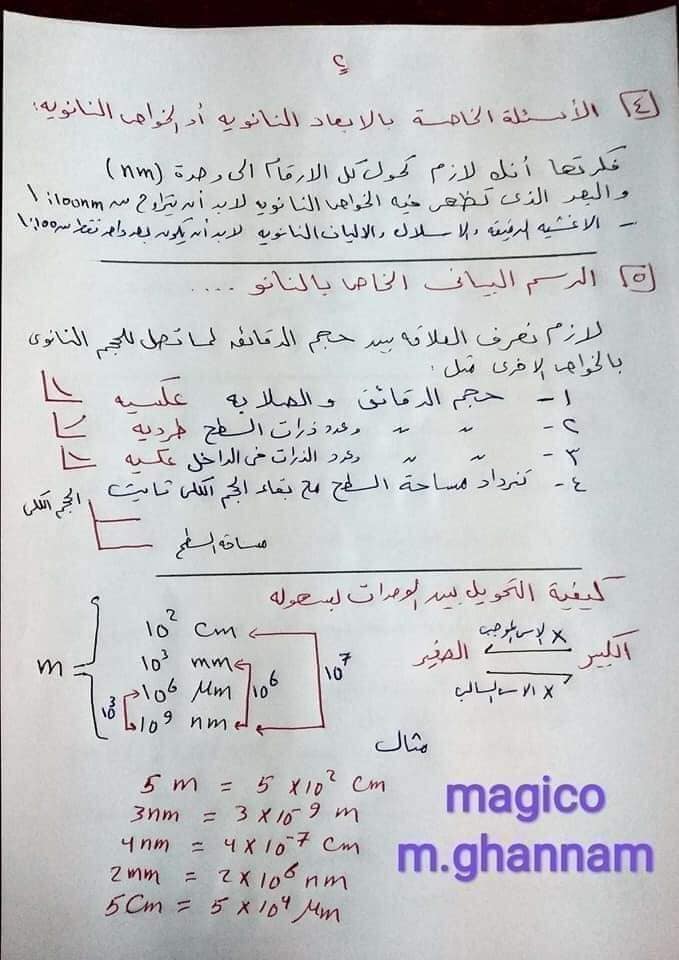 ٢
٤ الأسئلة الخاصة بالابعاد النانويه أو الخواص النانويه:
فكرتها أنك لازم تحول كل الارقام الى وحدة (nm)
والبعد الذى تظهر فيه الخواص النانويه لابد أن يتراوح من 1:100nm
- الاغشيه الرقيقه والاسلاك والالياف النانويه لابد أن يكون بعد واحد فقط من 1:100
٥ الرسم البيانى الخاص بالنانو ....
لازم تعرف العلاقه بين حجم الدقائق لما تصل للحجم النانوى
بالخواص الاخرى مثل:
١- حجم الدقائق والصلابه عكسيه
٢- " " وعدد ذرات السطح طرديه
٣- " " وعدد الذرات فى الداخل عكسيه
٤- تزداد مساحة السطح مع بقاء الحجم الكلى ثابت
الحجم الكلى
مساحة السطح
كيفية التحويل بين الوحدات بسهوله
m
10² cm
10³ mm
10⁶ μm
10⁹ nm
10³
10⁶
10⁷
الكبير الصغير
x الاس الموجب
x الاس السالب
مثال
5 m = 5 x 10² cm
3nm = 3 x 10⁻⁹ m
4nm = 4 x 10⁻⁷ cm
2mm = 2 x 10⁶ nm
5cm = 5 x 10⁴ μm
magico
m.ghannam